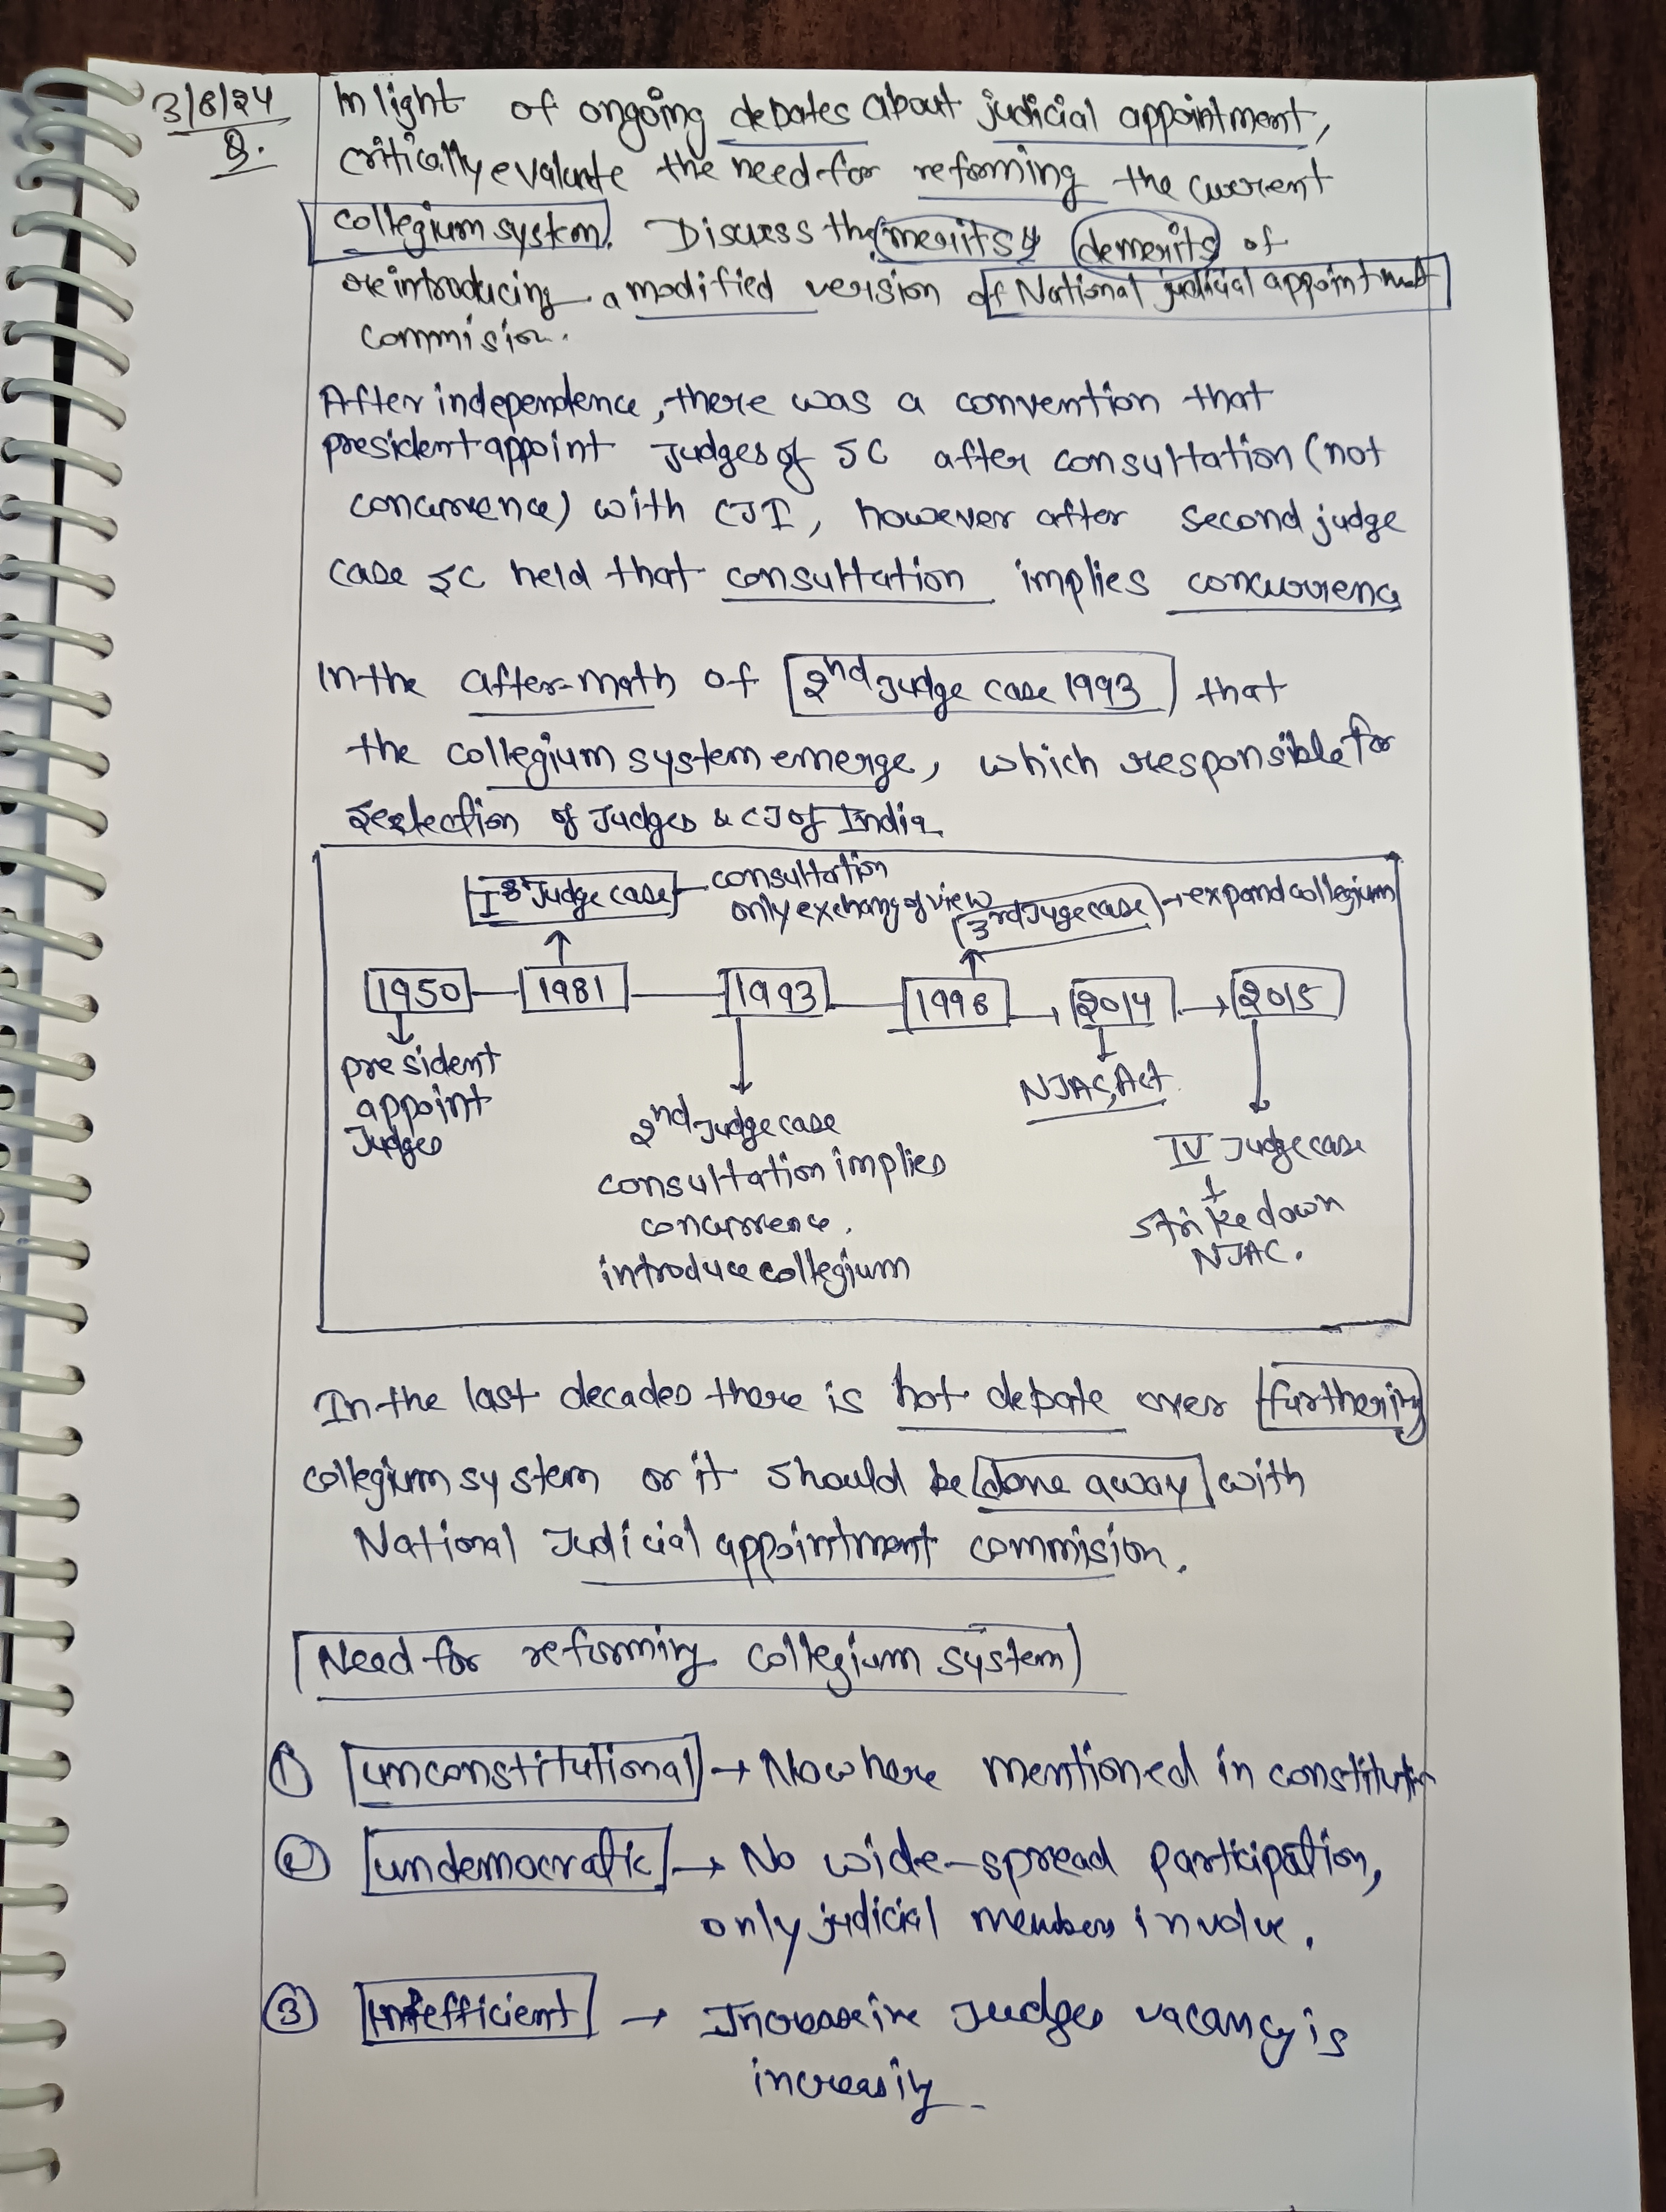 3/8/24
Q.
In light of ongoing debates about judicial appointment,
critically evaluate the need for reforming the current
collegium system. Discuss the merits & demerits of
reintroducing a modified version of National judicial appointment
commision.
After independence, there was a convention that
president appoint Judges of SC after consultation (not
concurrence) with CJI, however after second judge
case SC held that consultation implies concurrenc
In the after-math of 2nd Judge case 1993 that
the collegium system emerge, which responsible for
selection of Judges & CJ of India
Ist Judge case - consultation
only exchang of view
3rd Juge case → expand collegium
1950 1981 1993 1998 → 2014 → 2015
president
appoint
Judges
2nd Judge case
consultation implies
concurrence.
introduce collegium
NJAC, Act
IV Judge case
↓
strike down
NJAC.
In the last decades there is hot debate over furthering
collegium system or it should be done away with
National Judicial appointment commision.
Need for reforming collegium system
① unconstitutional → Nowhere mentioned in constitution
② undemocratic → No wide-spread participation,
only judicial members involve.
③ inefficient → Judges vacancy is
increasing